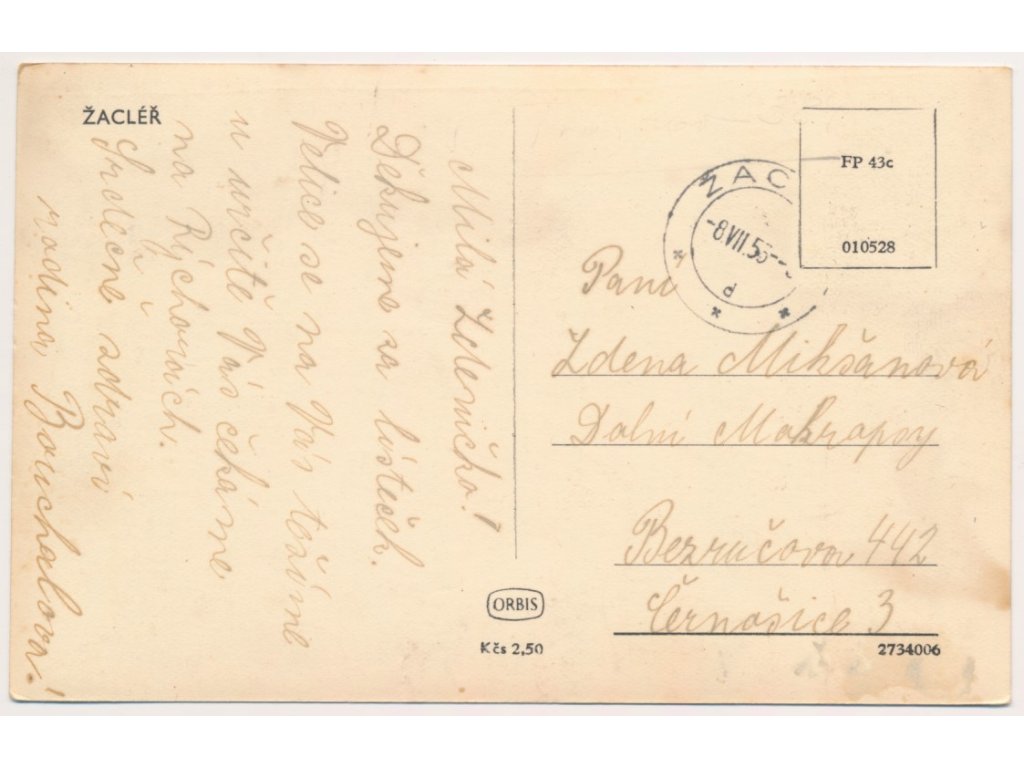 ŽACLÉŘ
Milá Zdeničko!
Děkujeme za lísteček.
Velice se na Vás těšíme
u určitě Vás čekáme
na Rýchorách.
Srdečně zdraví
rodina Bouchalova!
FP 43c
010528
ŽAC
-8.VII.55--
d
Paní
Zdena Mikšanová
Dolní Mokropsy
Bezručova 442
Černošice 3
ORBIS
Kčs 2,50
2734006